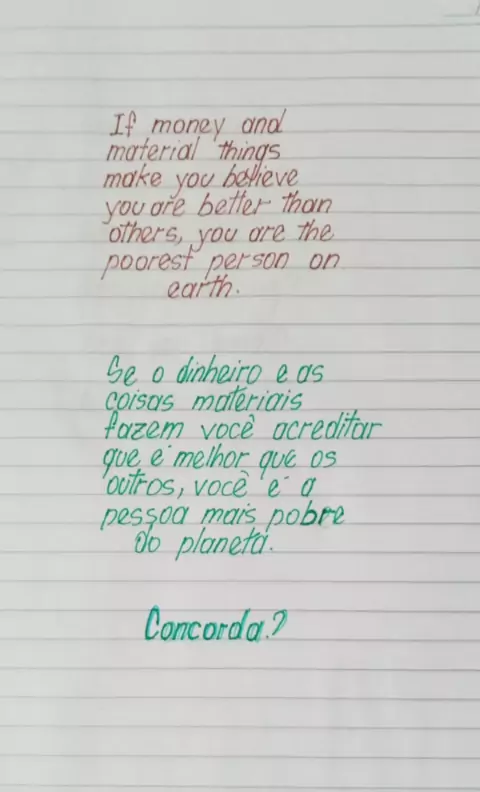 If money and
material things
make you believe
you are better than
others, you are the
poorest person on
earth.
Se o dinheiro e as
coisas materiais
fazem você acreditar
que é melhor que os
outros, você é a
pessoa mais pobre
do planeta.
Concorda.?